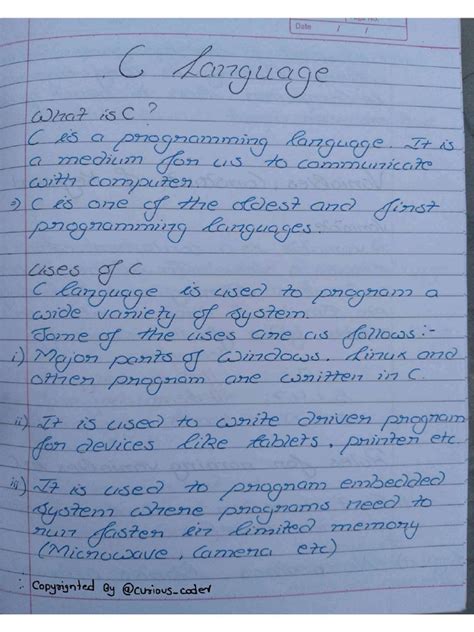 Page No.
Date / /
C Language
What is C ?
C is a programming language. It is
a medium for us to communicate
with computer.
C is one of the oldest and first
programming languages.
Uses of C
C language is used to program a
wide variety of system.
Some of the uses are as follows:-
i) Major parts of windows, Linux and
other program are written in C.
ii) It is used to write driver program
for devices like tablets, printer etc.
iii) It is used to program embedded
system where programs need to
run faster in limited memory
(Microwave, Camera etc)
: Copyrignted By @curious_coder